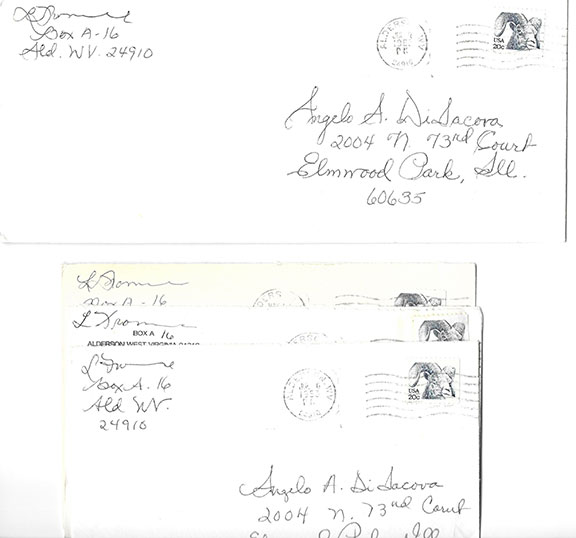 L Fromme
Box A-16
Ald. WV. 24910
ALDERSON, WV
USA
20c
Angelo A. DiIacova
2004 N. 73rd Court
Elmwood Park, Ill.
60635
L Fromme
Box A - 16
L Fromme
BOX A 16
ALDERSON WEST VIRGINIA
L Fromme
Box A. 16
Ald WV.
24910
USA
20c
Angelo A. DiIacova
2004 N. 73rd Court